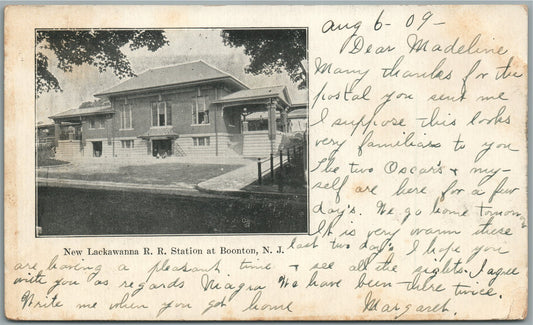 aug 6 - 09 -
Dear Madeline
Many thanks for the
postal you sent me
I suppose this looks
very familiars to you
The two Oscar's & my-
self are here for a few
day's. We go home tomorrow
It is very warm these
last two day's I hope you
New Lackawanna R. R. Station at Boonton, N. J.
are having a pleasant time & see all the sights. I agree
with you as regards Niagra We have been there twice.
Write me when you got home Margaret.